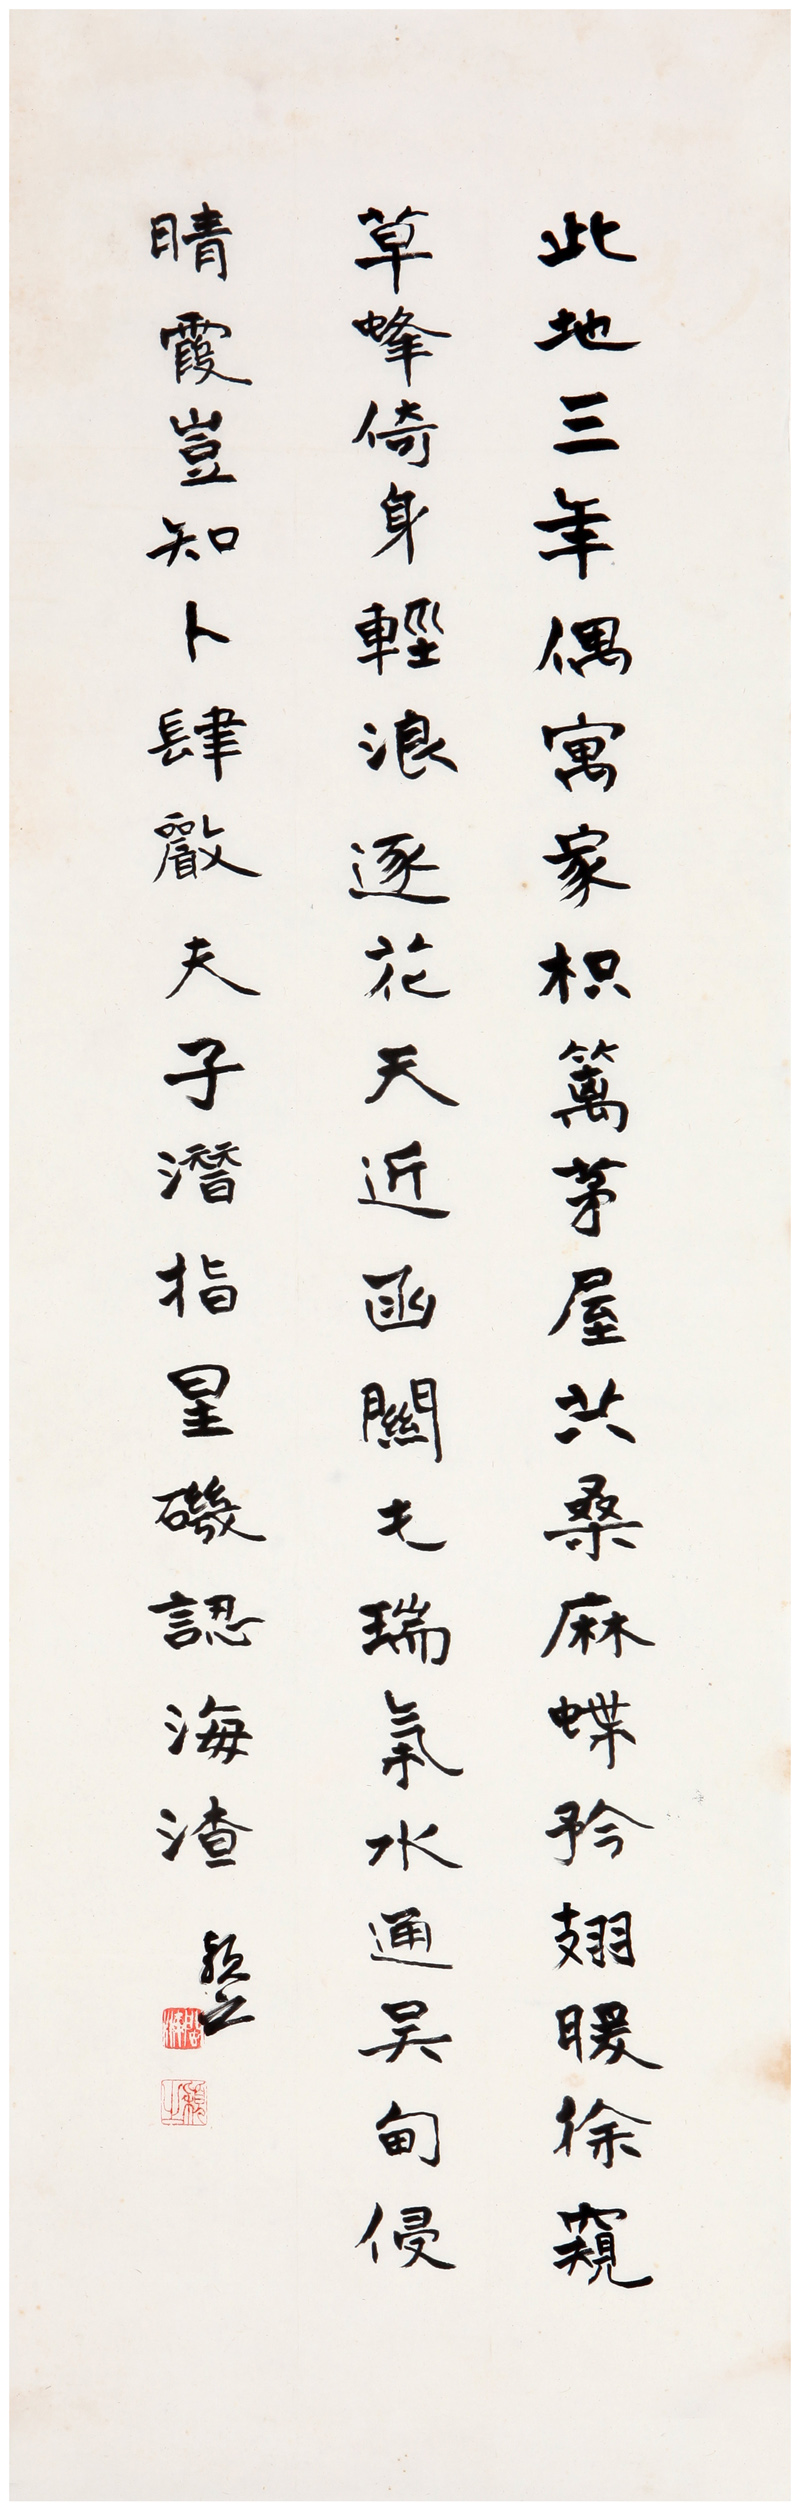 此地三年偶寓家枳籬茅屋共桑麻蝶矜翅暖徐窺
草蜂倚身輕浪逐花天近函關屯瑞氣水通吴甸侵
晴霞豈知卜肆嚴夫子潛指星磯認海渣
穎之